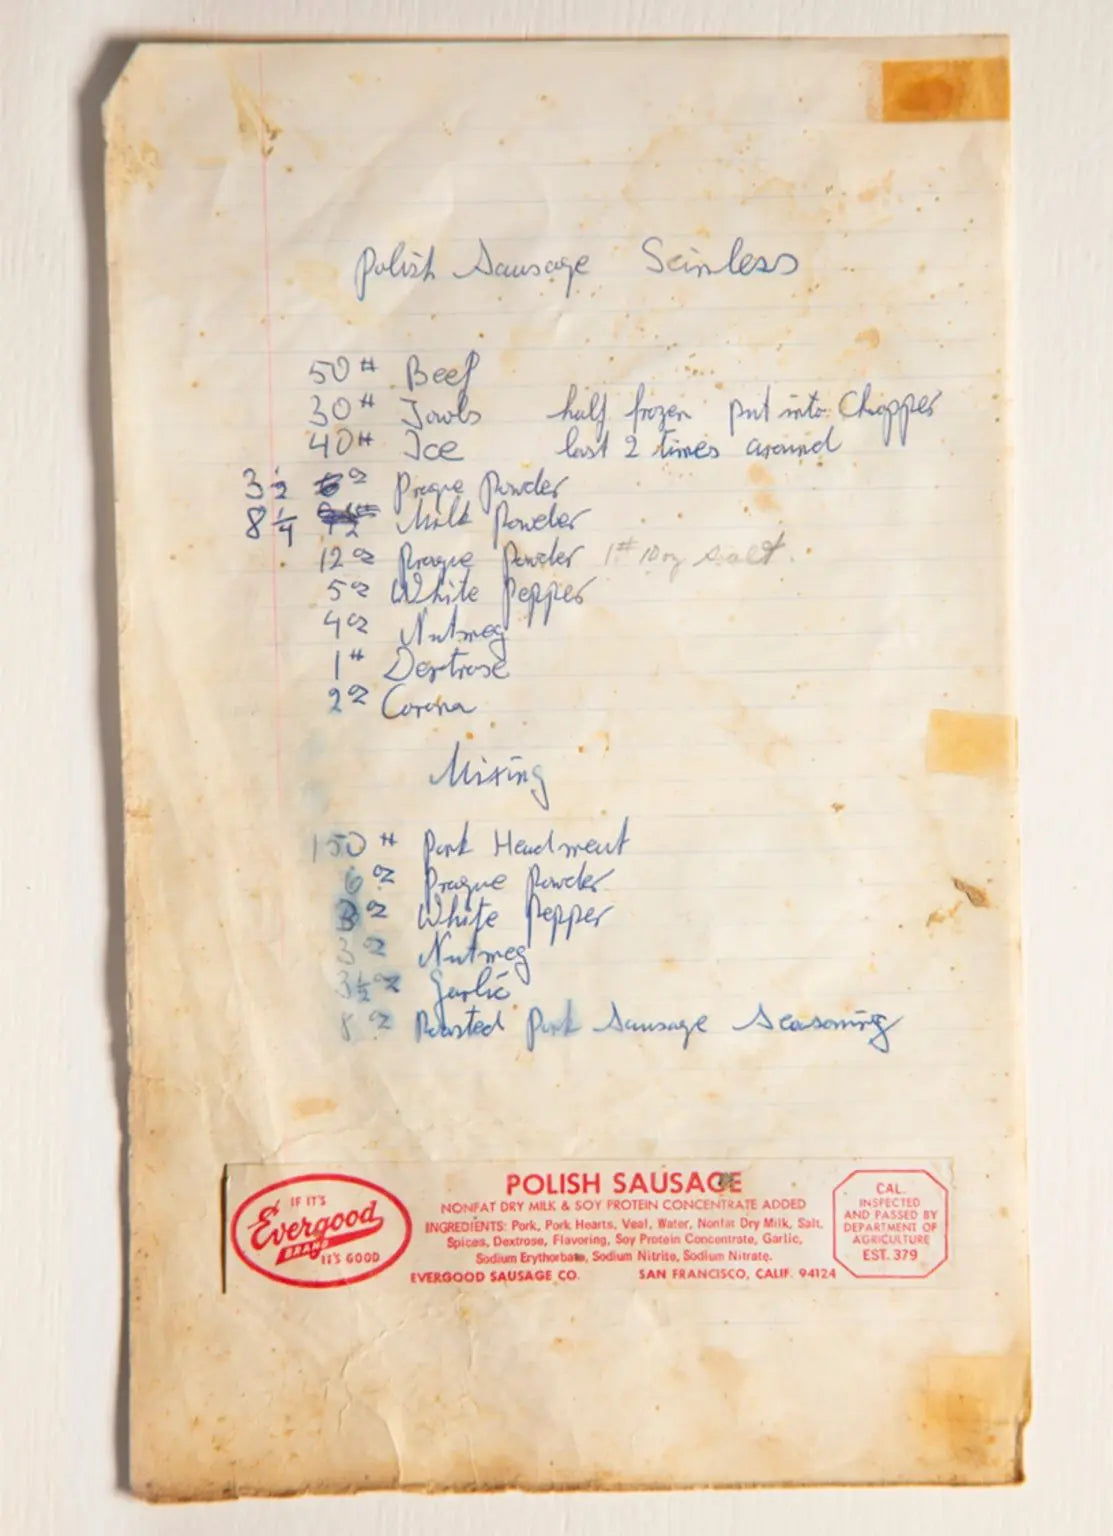 Polish Sausage Scinless
50# Beef
30# Jowls half frozen put into Chopper
40# Ice last 2 times around
3 1/2 oz Prague Powder
8 1/4 Milk Powder
12 oz Prague Powder 1# Dry Salt.
5 oz White Pepper
4 oz Nutmeg
1# Dextrose
2 oz Corona
Mixing
150# Pork Headmeat
6 oz Prague Powder
3 oz White Pepper
3 oz Nutmeg
3 1/2 oz Garlic
8 oz Roasted Pork Sausage Seasoning
IF IT'S
Evergood
BRAND
IT'S GOOD
POLISH SAUSAGE
NONFAT DRY MILK & SOY PROTEIN CONCENTRATE ADDED
INGREDIENTS: Pork, Pork Hearts, Veal, Water, Nonfat Dry Milk, Salt,
Spices, Dextrose, Flavoring, Soy Protein Concentrate, Garlic,
Sodium Erythorbate, Sodium Nitrite, Sodium Nitrate.
EVERGOOD SAUSAGE CO. SAN FRANCISCO, CALIF. 94124
CAL.
INSPECTED
AND PASSED BY
DEPARTMENT OF
AGRICULTURE
EST. 379